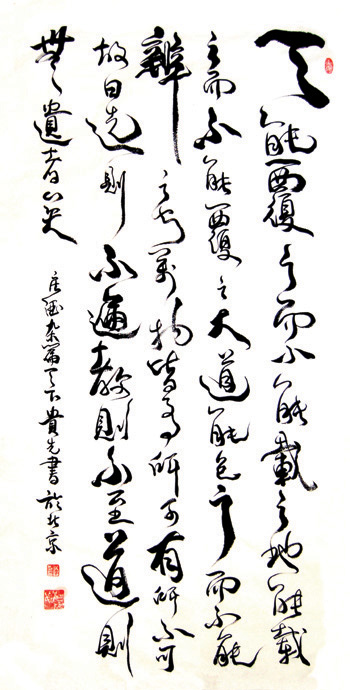 天能覆之而不能載之地能載
之而不能覆之大道能包之而不能
辨之知萬物皆有所可有所不可
故曰選則不遍教則不至道則
無遺者矣
雜篇天下貴先書於北京